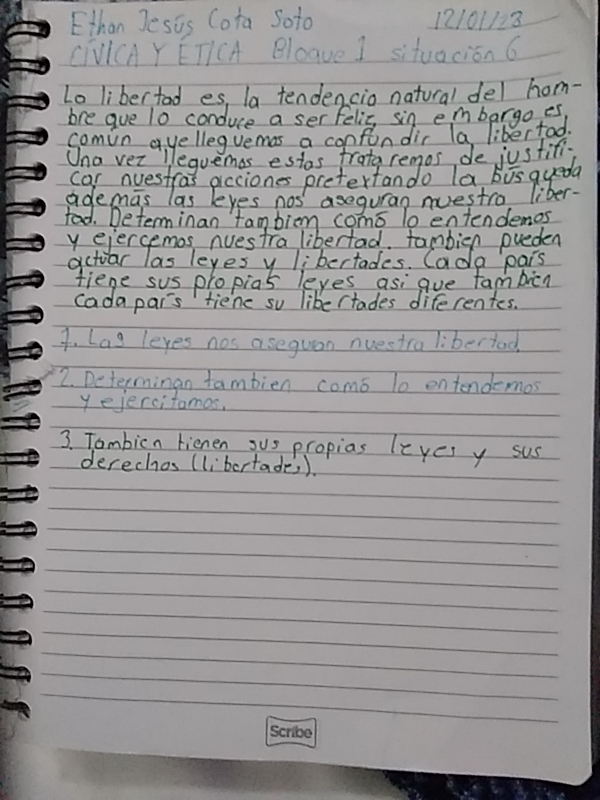 Ethan Jesús Cota Soto 12/01/23
CÍVICA Y ÉTICA Bloque 1 situación 6
Lo libertad es, la tendencia natural del hom-
bre que lo conduce a ser feliz, sin embargo es
común que lleguemos a confundir la libertad.
Una vez lleguémos estos trataremos de justifi-
car nuestras acciones pretextando la búsqueda
además las leyes nos aseguran nuestra liber-
tad. Determinan tambiem comó lo entendemos
y ejercemos nuestra libertad. tambien pueden
actuar las leyes y libertades. Cada país
tiene sus propias leyes asi que tambien
cada país tiene su libertades diferentes.
1. Las leyes nos aseguran nuestra libertad.
2. Determinan tambien comó lo entendemos
y ejercitamos.
3. Tambien tienen sus propias leyes y sus
derechos (libertades).
Scribe